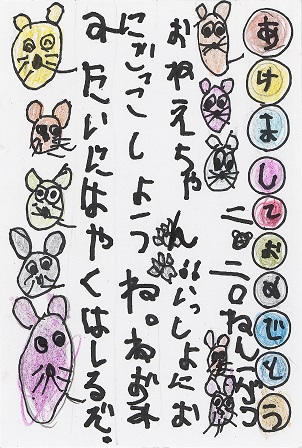 あけましておめでとう
二〇二〇ねん一がつ
おねえちゃん‼いっしょにお
にごっこしようね。ねず
みたいにはやくはしるぞ。